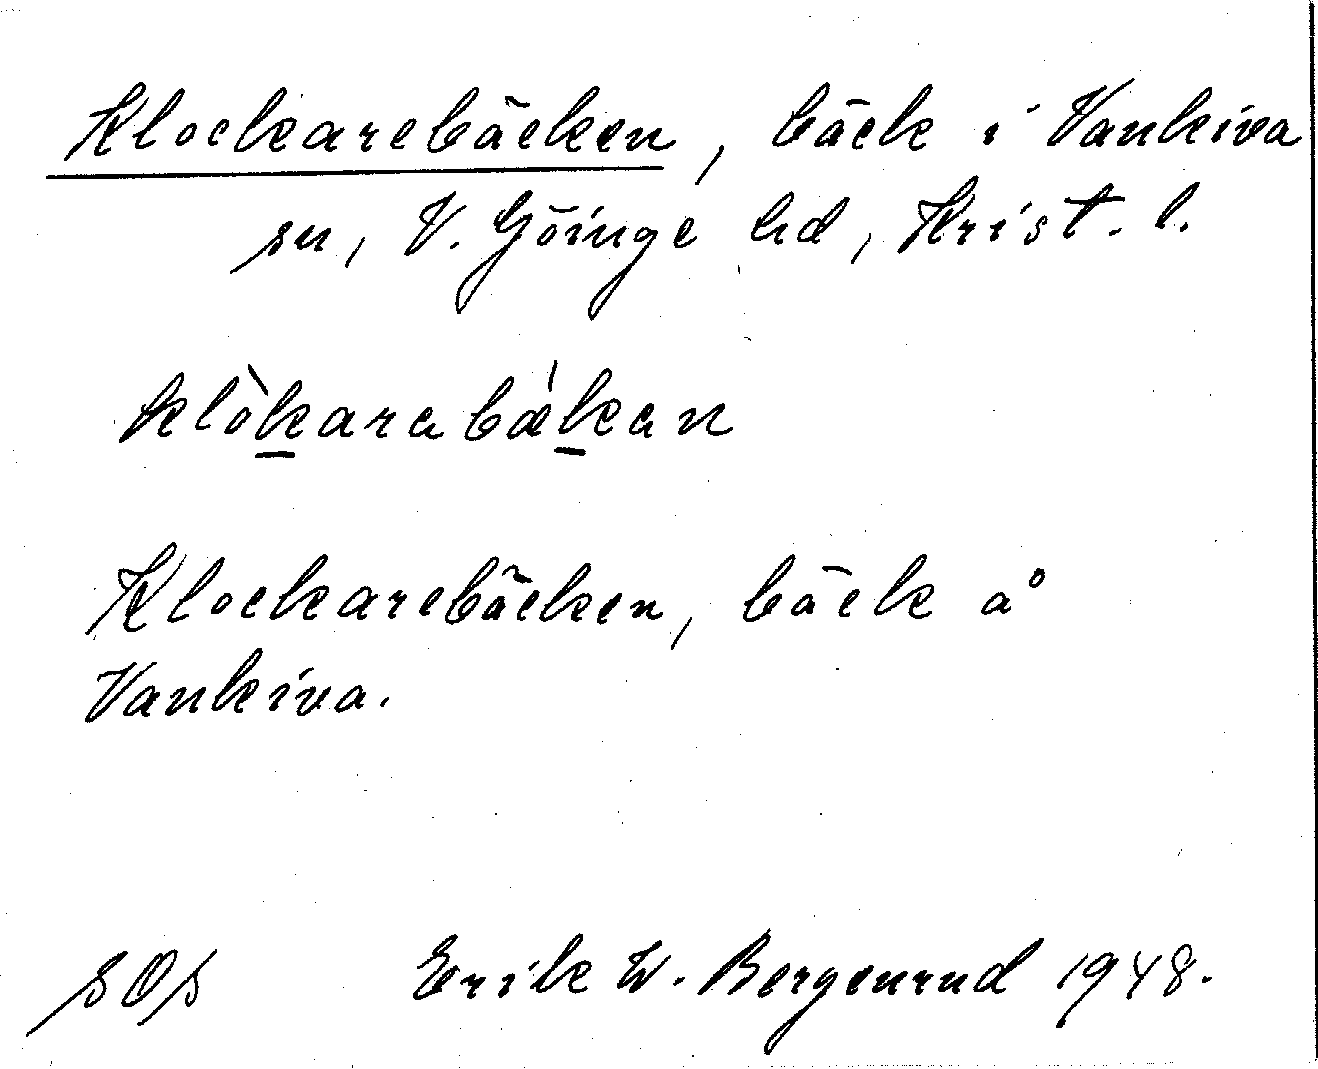 Klockarebäcken, bäck i Vankiva
sn, V. Göinge hd, Krist. l.
klòkarabǽkan
Klockarebäcken, bäck å
Vankiva.
SOS Erik W. Bergenrud 1948.